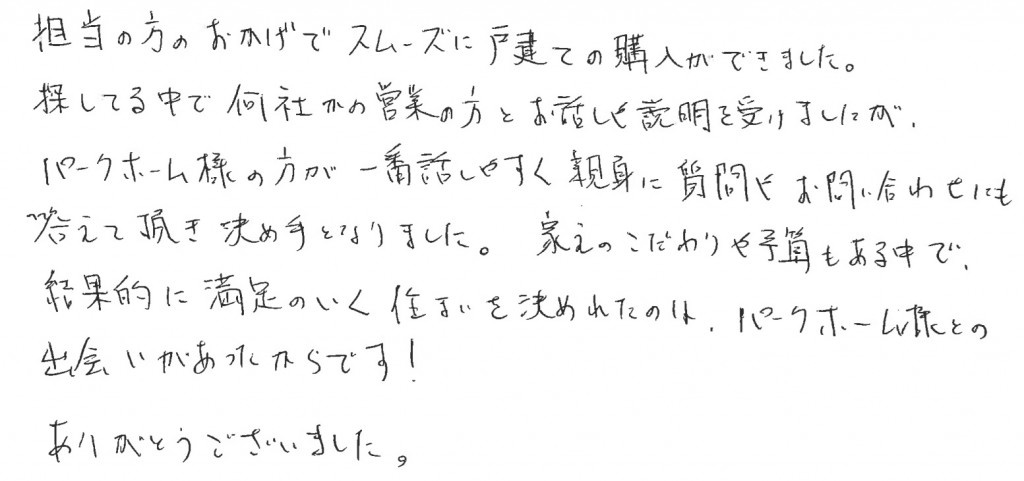 担当の方のおかげでスムーズに戸建ての購入ができました。
探してる中で何社かの営業の方とお話しや説明を受けましたが、
パークホーム様の方が一番話しやすく親身に質問やお問い合わせにも
答えて頂き決め手となりました。 家えのこだわりや予算もある中で、
結果的に満足のいく住まいを決めれたのは、パークホーム様との
出会いがあったからです！
ありがとうございました。